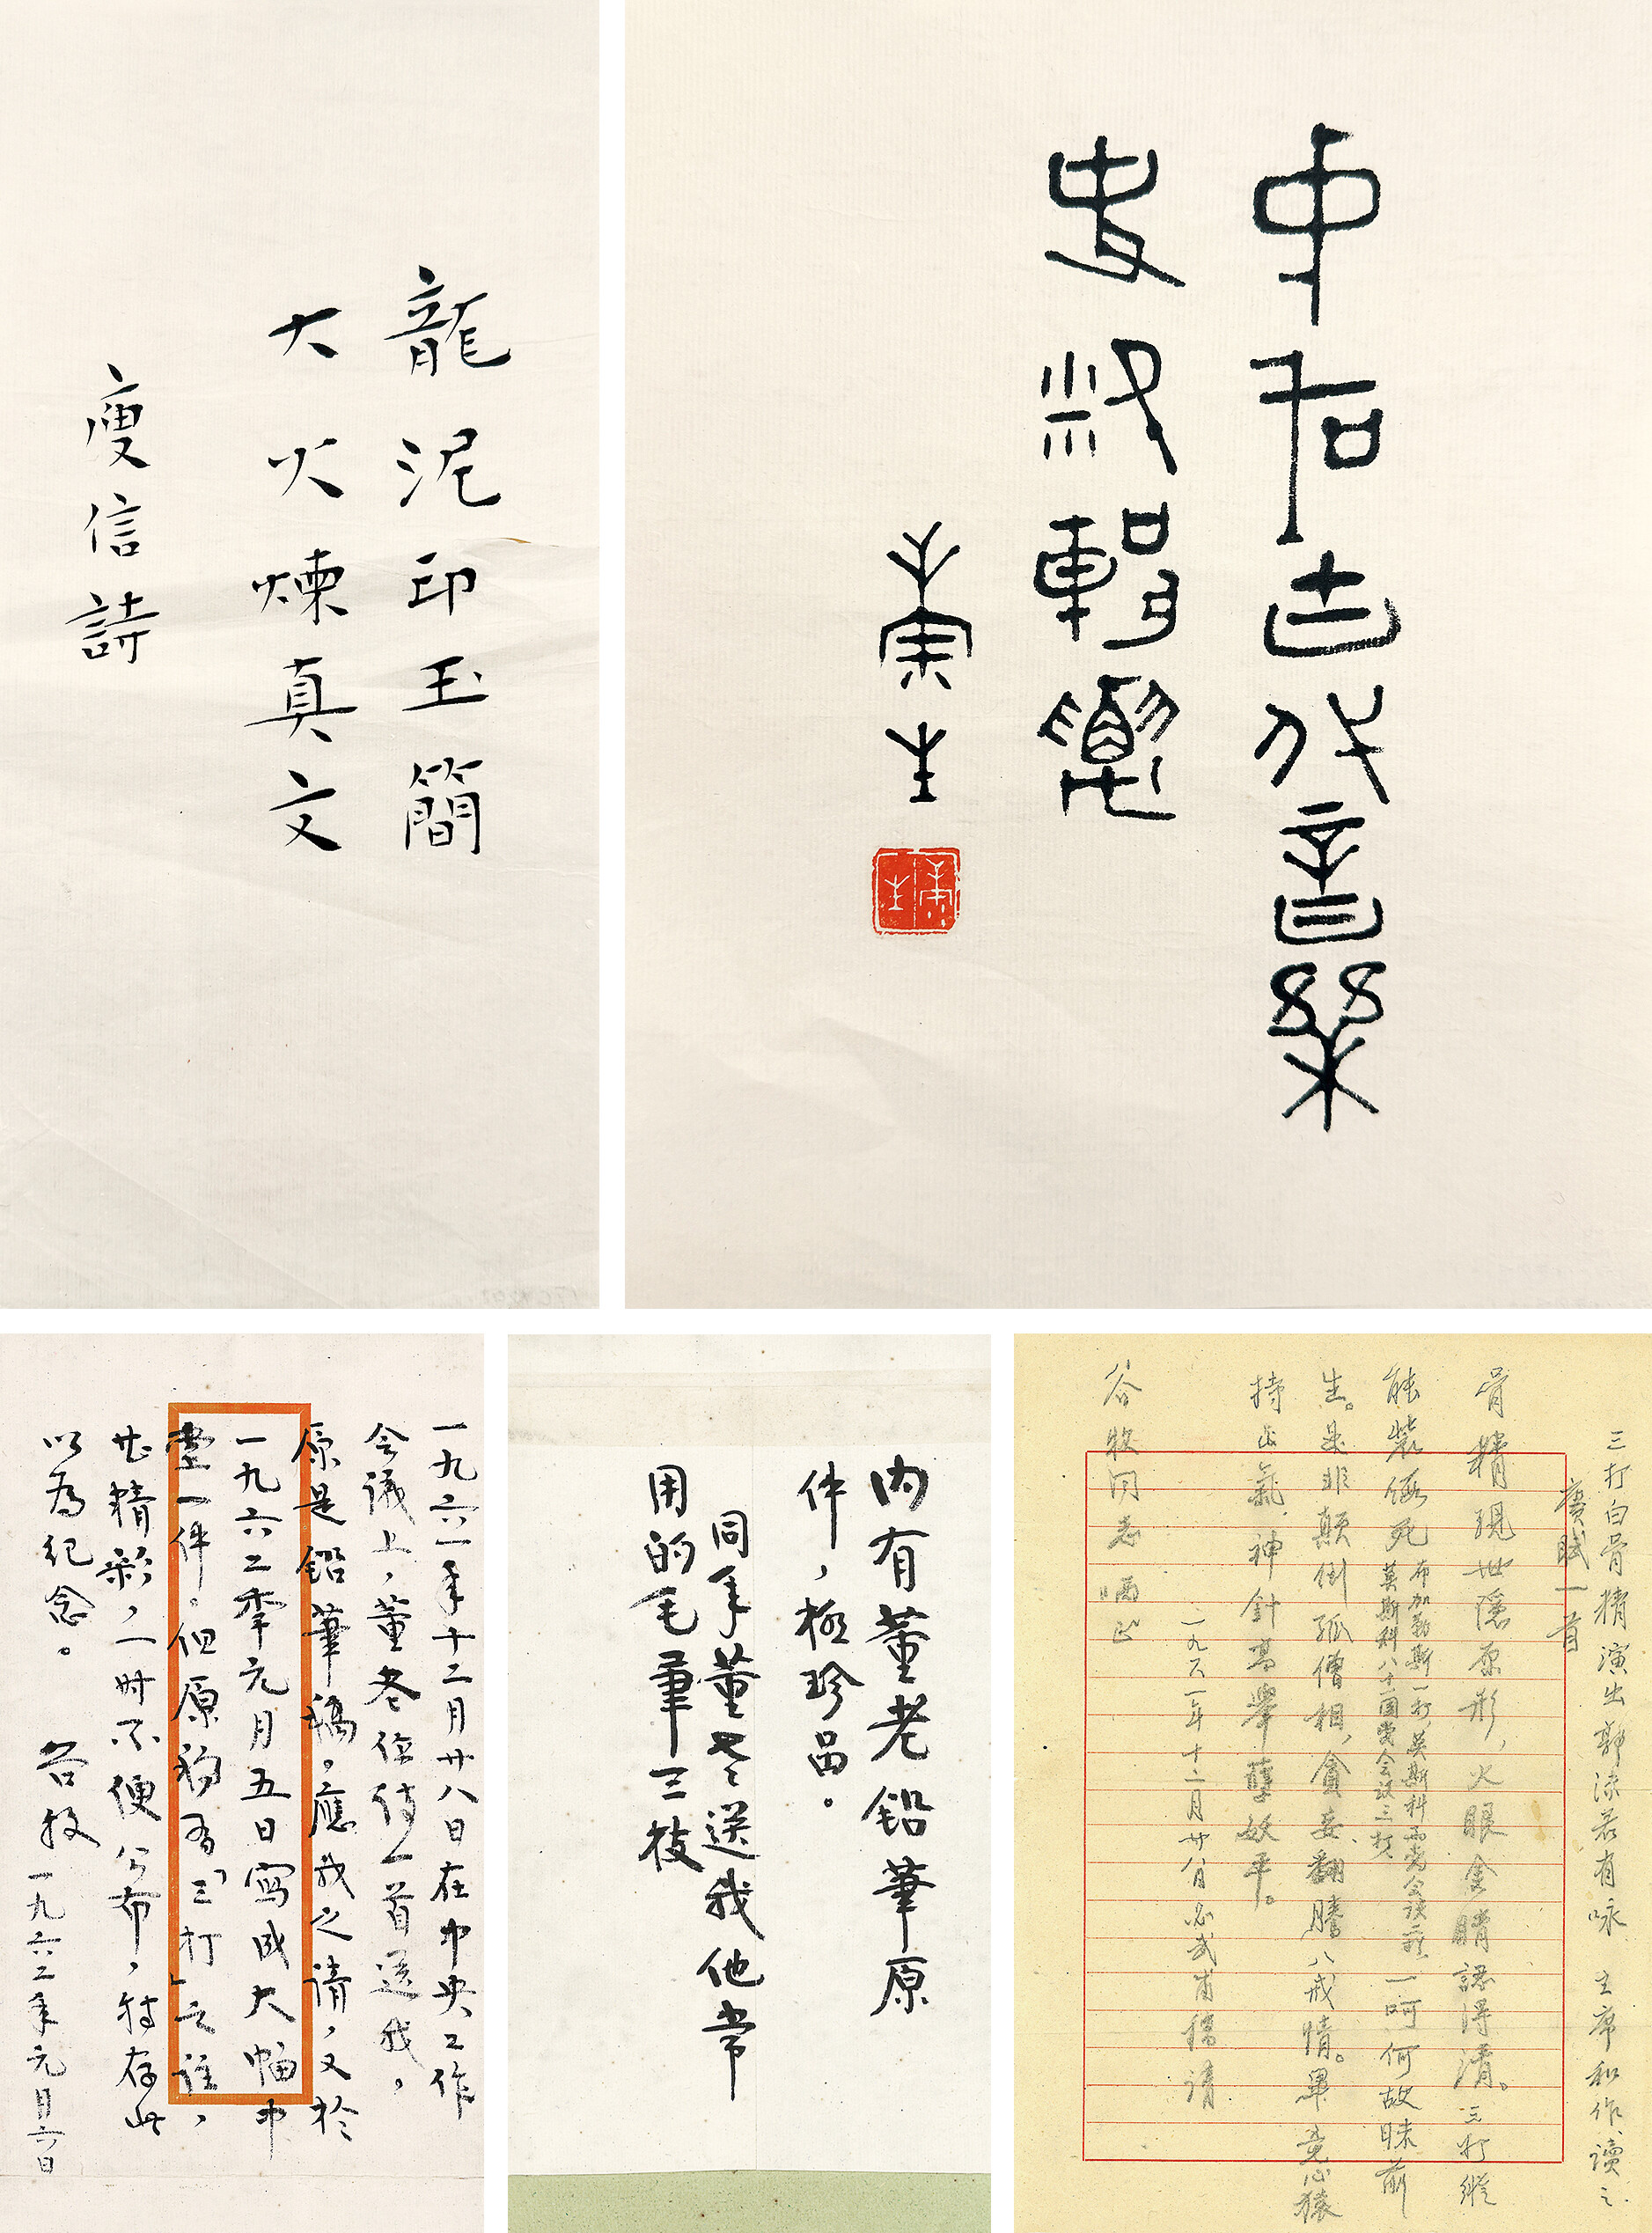 龍泥印玉簡
大火煉真文
庾信詩
中國古代音樂
史料輯要
康生
康生
一九六一年十二月廿八日在中央工作
会議上，董老作詩一首送我，
原是鉛筆稿。應我之請，又於
一九六二年元月五日寫成大幅中
堂一件。但原稿有「三打」之註，
甚精彩，一時不便公布，特存此
以為紀念。 谷牧 一九六二年元月六日
内有董老铅筆原
件，極珍品。
同年董老送我他常
用的毛筆三枝
三打白骨精演出郭沫若有咏 主席和作讀之
賡賦一首
骨精現世隱原形，火眼金睛認得清。三打縱
能裝假死 布加勒斯一打，莫斯科両党会談二打，莫斯科八十一国党会议三打 一呵何故昧前
生。是非顛倒孤僧相，貪妄翻騰八戒情。畢竟心猿
持正氣，神針高舉孽妖平。
一九六一年十二月廿八日必武甫稿請
谷牧同志哂正